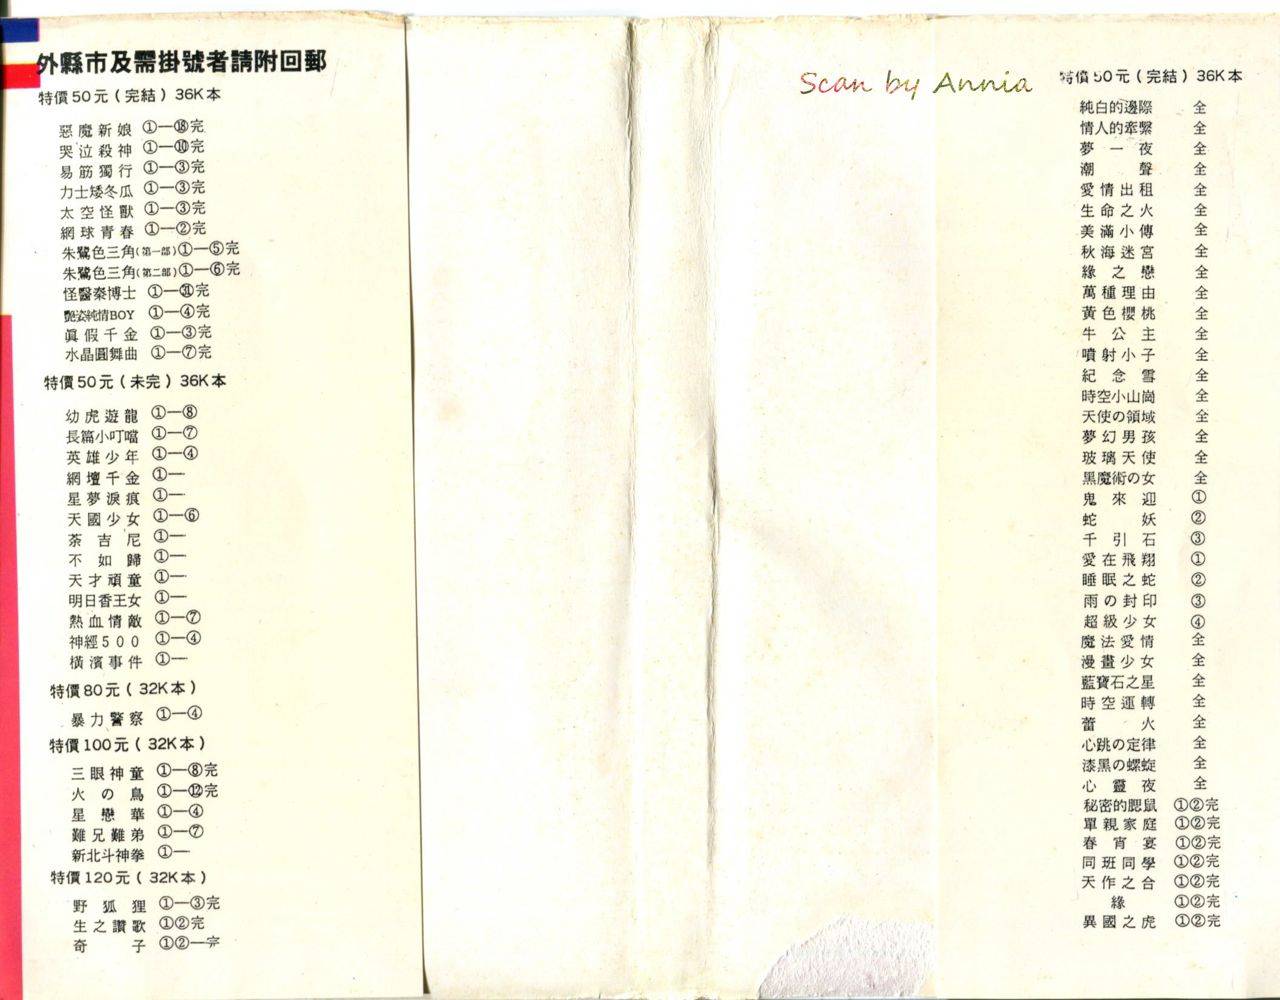 外縣市及需掛號者請附回郵
特價50元(完結)36K本
惡魔新娘 ①—⑱完
哭泣殺神 ①—⑩完
易筋獨行 ①—③完
力士矮冬瓜 ①—③完
太空怪獸 ①—③完
網球青春 ①—②完
朱鷺色三角(第一部)①—⑤完
朱鷺色三角(第二部)①—⑥完
怪醫秦博士 ①—㉛完
艷姿純情BOY ①—④完
眞假千金 ①—③完
水晶圓舞曲 ①—⑦完
特價50元(未完)36K本
幼虎遊龍 ①—⑧
長篇小叮噹 ①—⑦
英雄少年 ①—④
網壇千金 ①—
星夢淚痕 ①—
天國少女 ①—⑥
荼吉尼 ①—
不如歸 ①—
天才頑童 ①—
明日香王女 ①—
熱血情敵 ①—⑦
神經500 ①—④
橫濱事件 ①—
特價80元(32K本)
暴力警察 ①—④
特價100元(32K本)
三眼神童 ①—⑧完
火の鳥 ①—⑫完
星戀華 ①—④
難兄難弟 ①—⑦
新北斗神拳 ①—
特價120元(32K本)
野狐狸 ①—③完
生之讚歌 ①②完
奇子 ①②—完
Scan by Annia
特價50元(完結)36K本
純白的邊際 全
情人的牽繫 全
夢一夜 全
潮聲 全
愛情出租 全
生命之火 全
美滿小傳 全
秋海迷宮 全
緣之戀 全
萬種理由 全
黃色櫻桃 全
牛公主 全
噴射小子 全
紀念雪 全
時空小山崗 全
天使の領域 全
夢幻男孩 全
玻璃天使 全
黑魔術の女 全
鬼來迎 ①
蛇妖 ②
千引石 ③
愛在飛翔 ①
睡眠之蛇 ②
雨の封印 ③
超級少女 ④
魔法愛情 全
漫畫少女 全
藍寶石之星 全
時空運轉 全
蕾火 全
心跳の定律 全
漆黑の螺旋 全
心靈夜 全
秘密的腮鼠 ①②完
單親家庭 ①②完
春宵宴 ①②完
同班同學 ①②完
天作之合 ①②完
緣 ①②完
異國之虎 ①②完